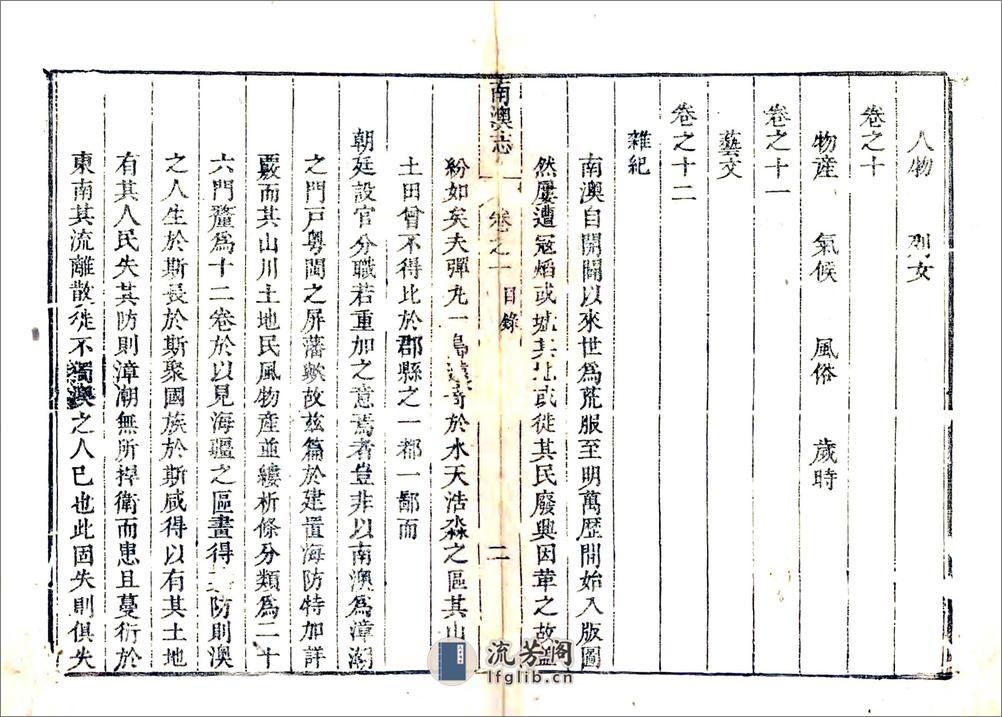 人物 列女
卷之十
物產 氣候 風俗 歲時
卷之十一
藝文
卷之十二
雜紀
南澳自開闢以來世爲荒服至明萬歷開始入版圖
然屢遭寇熖或墟其地或徙其民廢興因革之故
紛如矣夫彈丸一島遠於水天浩淼之區其山
土田曾不得比於郡縣之一都一鄙而
南澳志 卷之一 目錄 二
朝廷設官分職若重加之意焉者豈非以南澳爲漳潮
之門戸粵閩之屏藩歟故兹篇於建置海防特加詳
覈而其山川土地民風物產並縷析條分類爲二十
六門釐爲十二卷於以見海疆之區畫得防則澳
之人生於斯長於斯聚國族於斯咸得以有其土地
有其人民失其防則漳潮無所捍衛而患且蔓衍於
東南其流離散徙不獨澳之人已也此固失則俱失
流芳阁
lfglib.cn